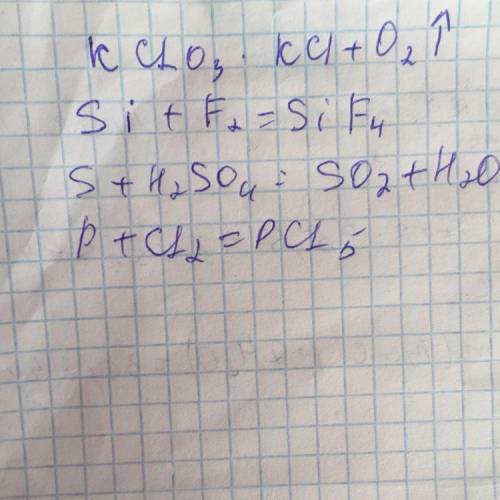 K ClO₃ · KCl + O₂↑
Si + F₂ = Si F₄
S + H₂SO₄ = SO₂ + H₂O
P + Cl₂ = PCl₅